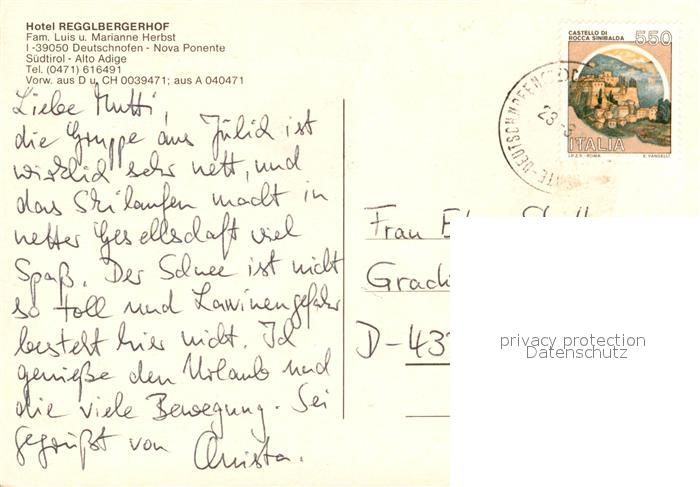 Hotel REGGLBERGERHOF
Fam. Luis u. Marianne Herbst
I -39050 Deutschnofen - Nova Ponente
Südtirol - Alto Adige
Tel. (0471) 616491
Vorw. aus D u. CH 0039471; aus A 040471
Liebe Mutti,
die Gruppe aus Jülich ist
wirklich sehr nett, und
das Skilaufen macht in
netter Gesellschaft viel
Spaß. Der Schnee ist nicht
so toll und Lawinengefahr
besteht hier nicht. Ich
genieße den Urlaub und
die viele Bewegung. Sei
gegrüßt von
CASTELLO DI
ROCCA SINIBALDA
550
ITALIA
I.P.Z.S. - ROMA
E. VANGELLI
DEUTSCHNOFEN
23
Frau
D-43
privacy protection
Datenschutz